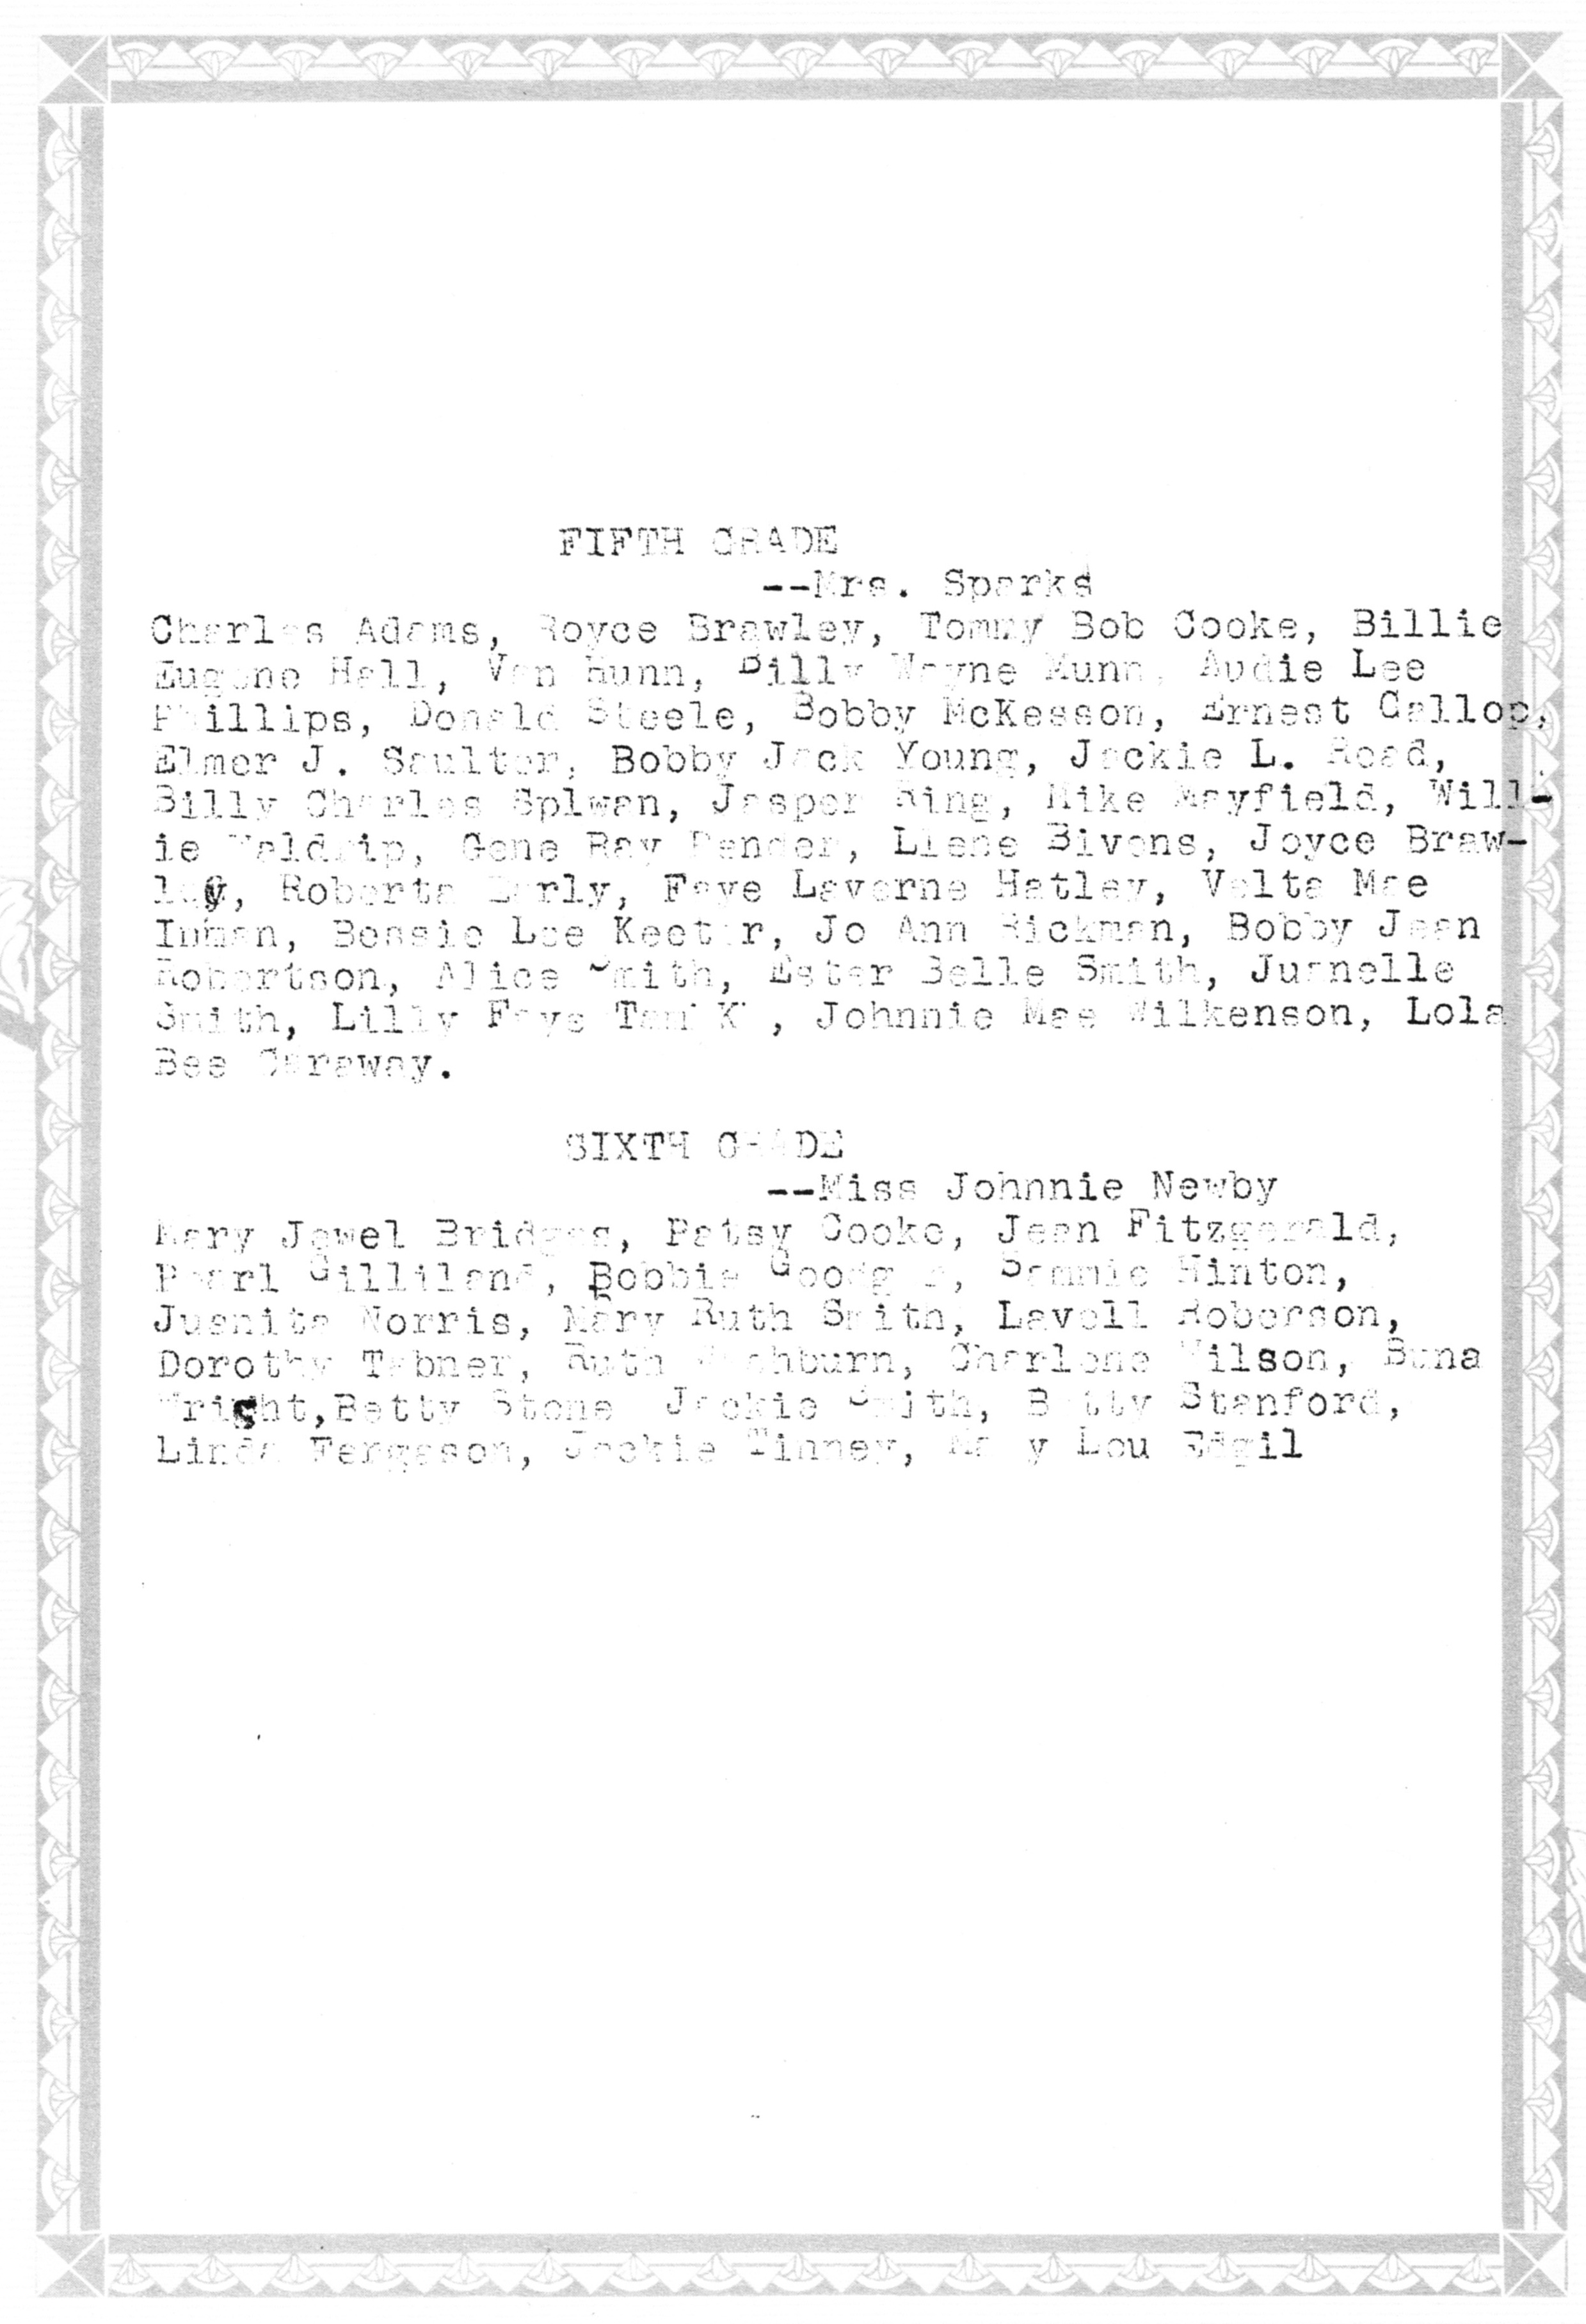 FIFTH GRADE
--Mrs. Sparks
Charles Adams, Royce Brawley, Tommy Bob Cooke, Billie
Eugene Hall, Van Hunn, Billy Wayne Munn, Audie Lee
Phillips, Donald Steele, Bobby McKesson, Ernest Gallop,
Elmer J. Saulter, Bobby Jack Young, Jackie L. Road,
Billy Charles Splwan, Jasper Ring, Mike Mayfield, Will-
ie Waldrip, Gene Ray Pender, Llene Bivens, Joyce Braw-
ley, Roberta Early, Faye Laverne Hatley, Velta Mae
Inman, Bessie Lee Keeter, Jo Ann Rickman, Bobby Jean
Robertson, Alice Smith, Ester Belle Smith, Juanelle
Smith, Lilly Faye , Johnnie Mae Wilkenson, Lola
Bee Caraway.
SIXTH GRADE
--Miss Johnnie Newby
Mary Jewel Bridges, Patsy Cooke, Jean Fitzgerald,
Pearl Gilliland, Bobbie , Sammie Hinton,
Juanita Norris, Mary Ruth Smith, Lavell Roberson,
Dorothy Tabner, Ruth Washburn, Charlene Wilson, Buna
Wright,Betty Stone Jackie Smith, Betty Stanford,
Linda Fergason, Jackie Tinney, Mary Lou Edgil